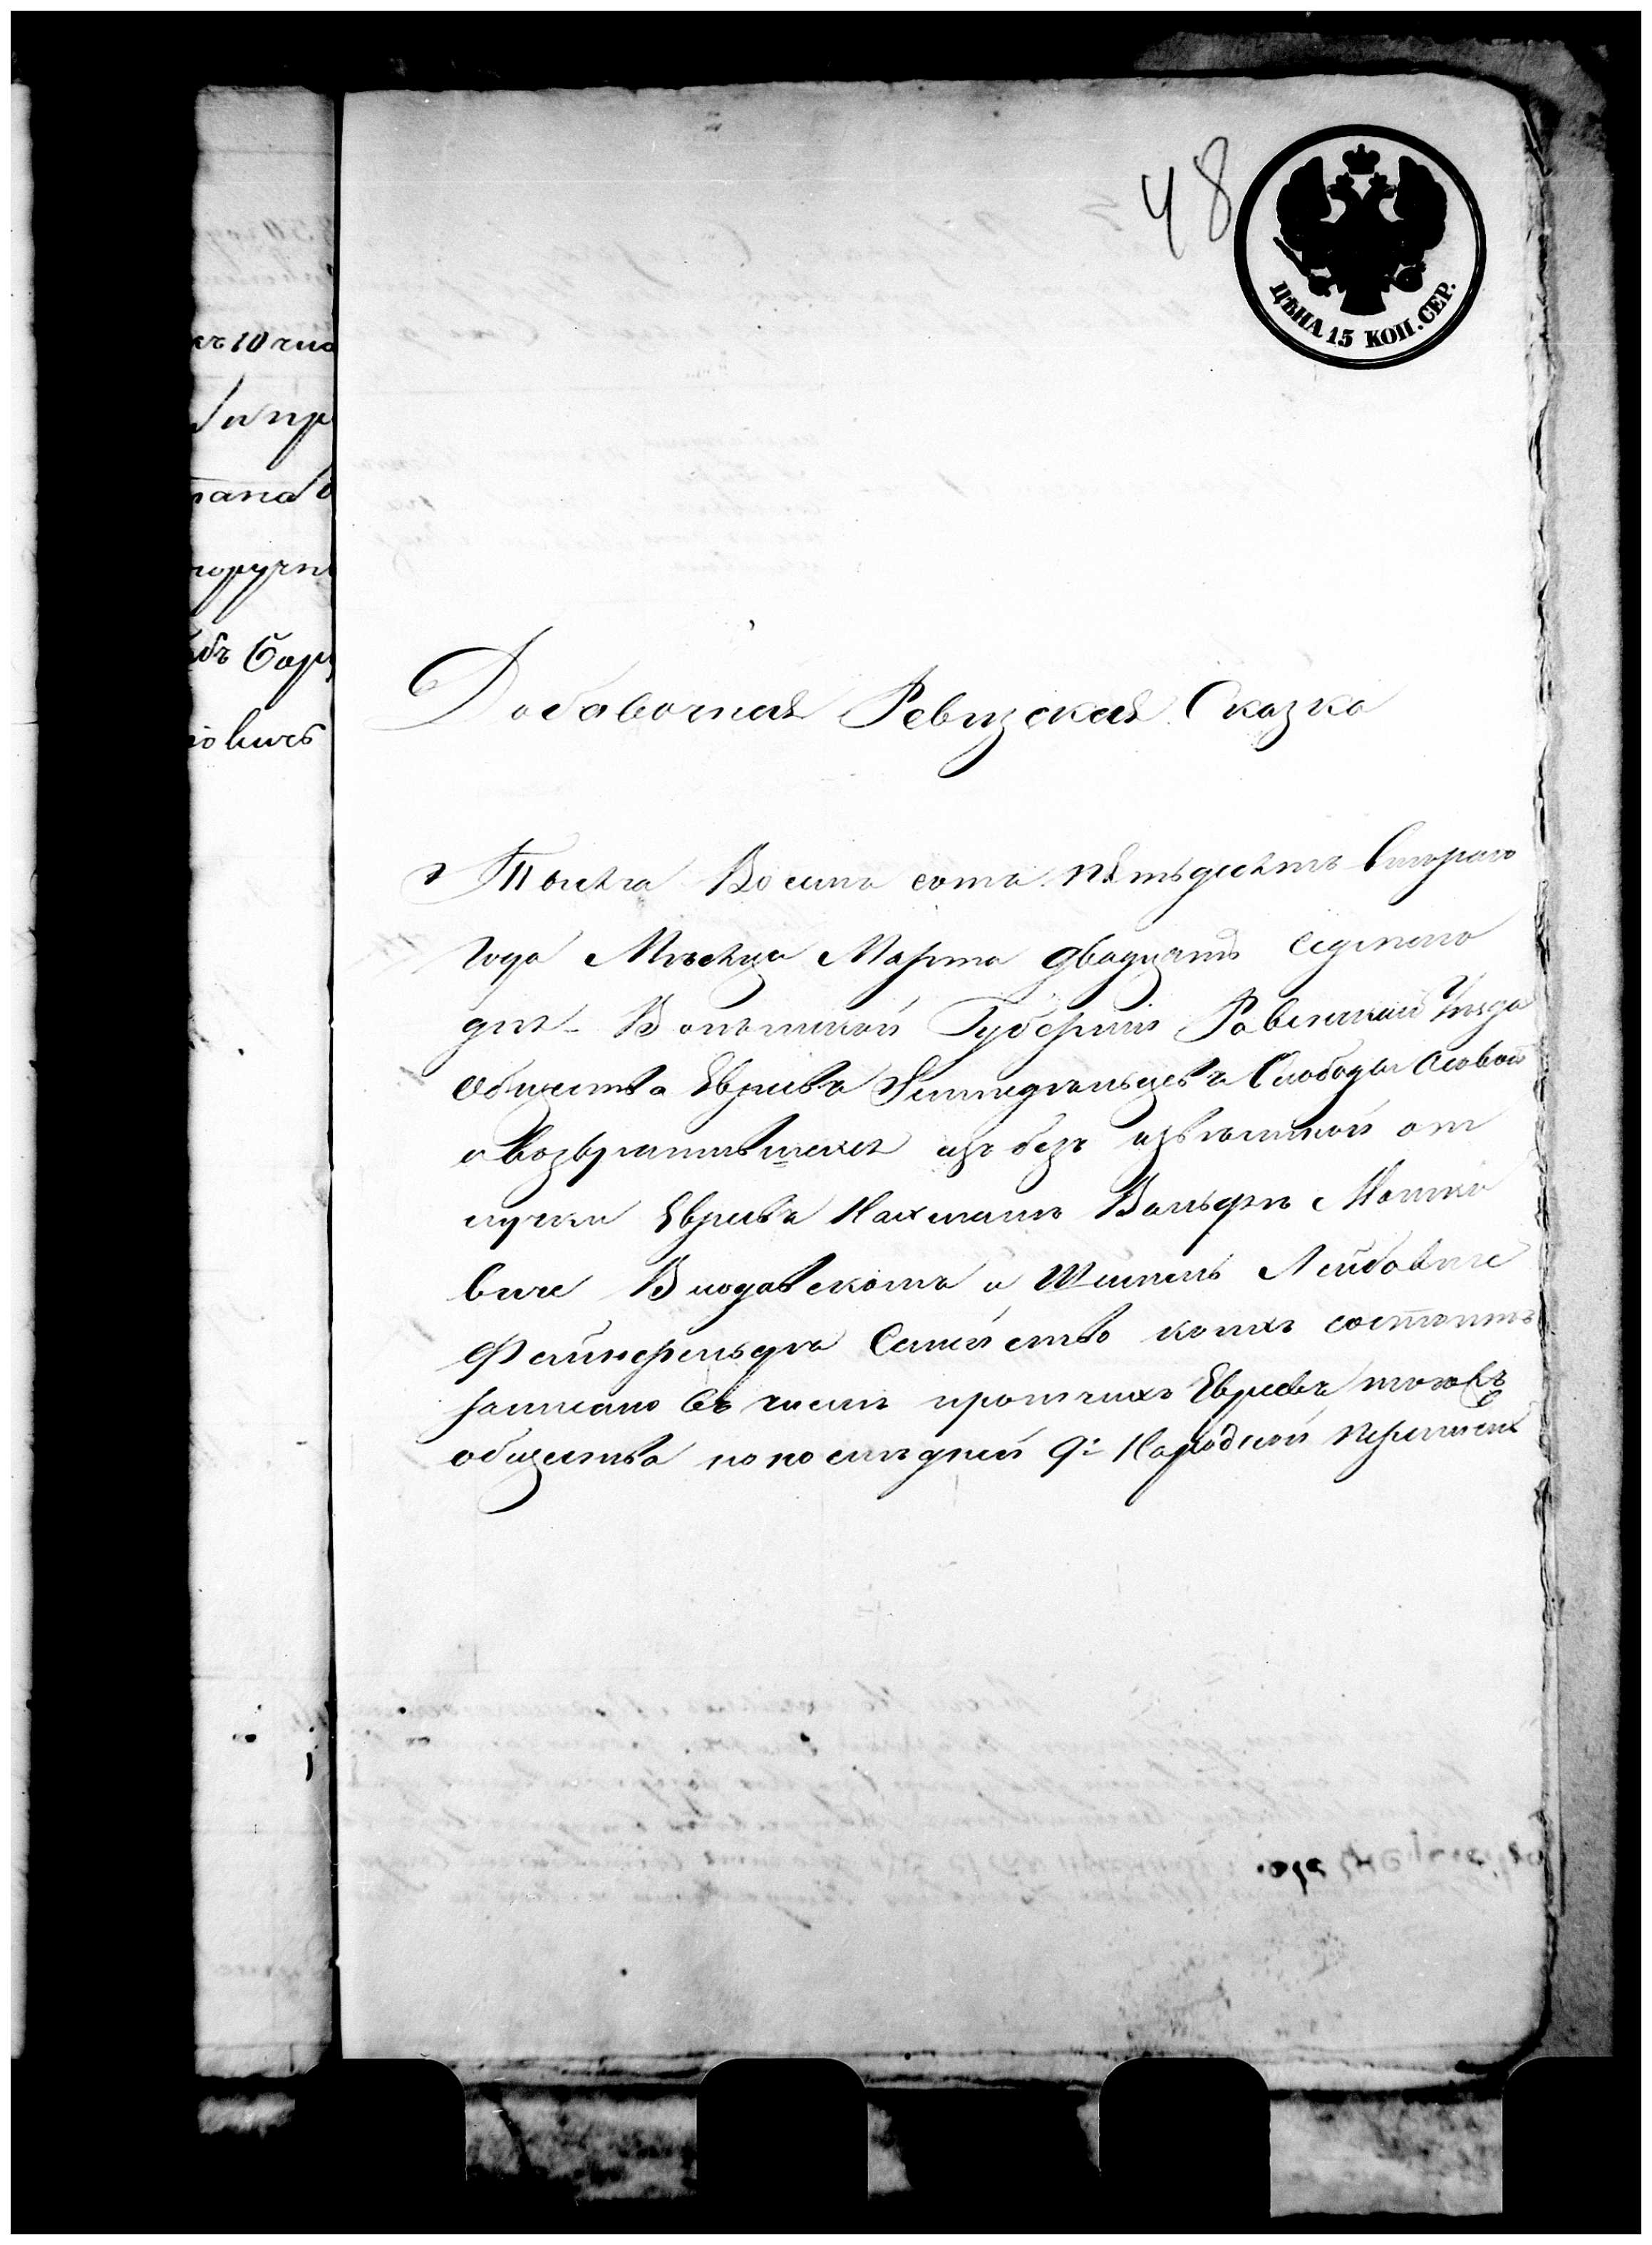 48
ЦѢНА 15 КОП. СЕР.
къ 10 чис
пр
поручи
Добавочная Ревизская Сказка
Тысяча Восемь сотъ пятьдесятъ втораго
Года Мѣсяца Марта двадцать седмаго
дня Волынской Губерніи Ровенскаго Уѣзда
общества Евреевъ Земледѣльцевъ Слободы Осовой
о возвратившихся изъ безъ извѣстной от
лучки Евреевъ Нахманъ Вольфъ Мошко
виче Влодавскомъ и Шмиль Лейбовиче
Файнфельдъ Семейство коихъ состоитъ
записано въ числѣ прочихъ Евреевъ тогожъ
общества по послѣдней 9й Народной переписи